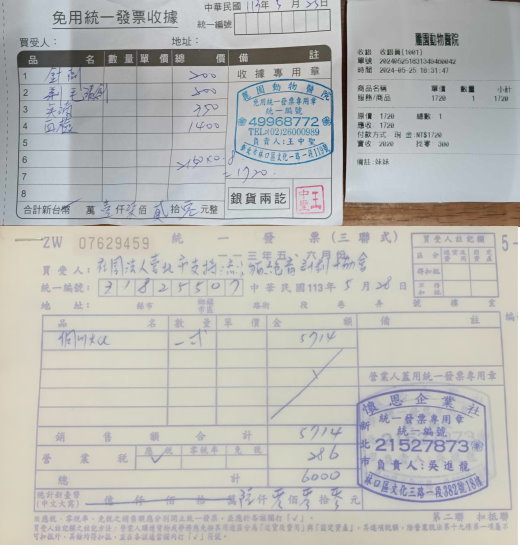 免用統一發票收據
中華民國 113年5月25日
統一編號
買受人：
地址：
品名 數量 單價 總價 備註
收據專用章
1 針劑 200
2 300
3 350
4 血檢 1400
5
6 2150×0.8
7 =1720
8
惠園動物醫院
免用統一發票專用章
統一編號
49968772
TEL:(02)26000989
負責人:王中聖
新北市林口區文化一路一段119號
銀貨兩訖
合計新台幣 萬 壹仟柒佰貳拾零元整
惠園動物醫院
收銀 收銀員(1001)
單號 20240525183134940042
時間 2024-05-25 18:31:47
商品名稱 單價 數量 小計
服務/商品 1720 1 1720
原價 1720 總數 1
應收 1720
付款方式 現金:NT$1720
實收 2020 找零 300
備註:妹妹
ZW 07629459
統一發票(三聯式)
一一三年五、六月份
買受人：社團法人臺北市支持流浪貓絕育計劃協會
統一編號：31825507
中華民國113年5月28日
地址： 縣市 鄉鎮市區 路街 段 巷 弄 號 樓 室
買受人註記欄
品名 數量 單價 金額 備註
一式 5714
營業人蓋用統一發票專用章
銷售額合計 5714
營業稅 應稅 ✓ 零稅率 免稅 286
總計 6000
總計新臺幣
(中文大寫) 億 仟 佰 拾 萬 陸仟零佰零拾零元
懷恩企業社
統一發票專用章
統一編號
21527873
負責人:吳進龍
新北市
林口區文化三路一段382號18樓
※應稅、零稅率、免稅之銷售額應分別開立統一發票，並應於各該欄打「✓」。
第二聯 扣抵聯